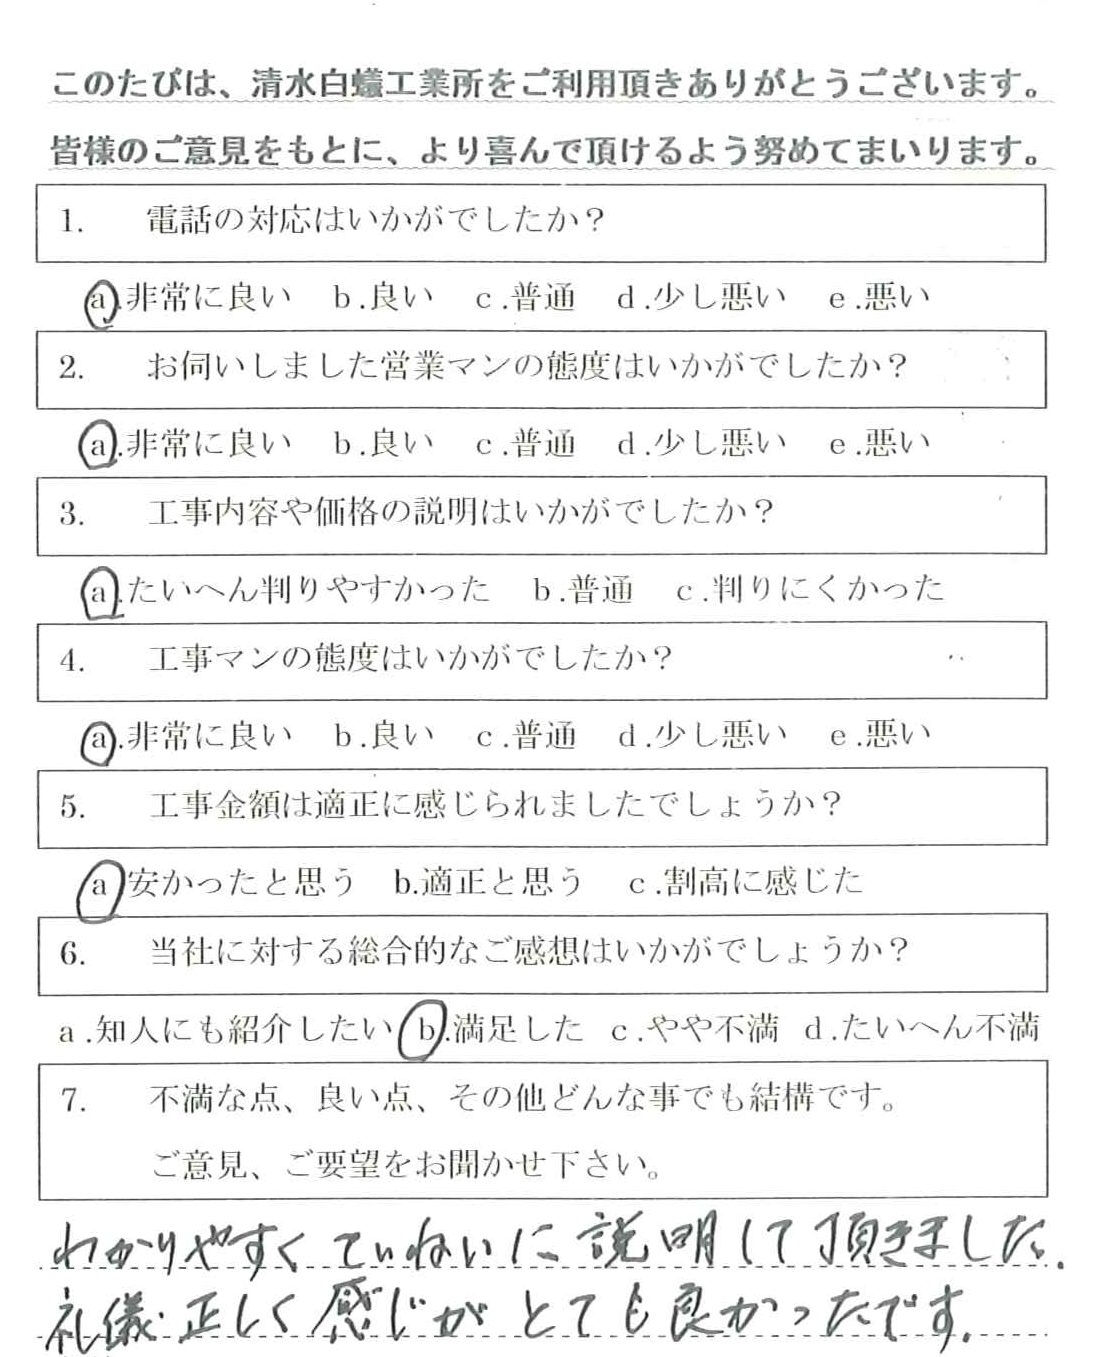 このたびは、清水白蟻工業所をご利用頂きありがとうございます。
皆様のご意見をもとに、より喜んで頂けるよう努めてまいります。
1.　電話の対応はいかがでしたか？
a.非常に良い　b.良い　c.普通　d.少し悪い　e.悪い
2.　お伺いしました営業マンの態度はいかがでしたか？
a.非常に良い　b.良い　c.普通　d.少し悪い　e.悪い
3.　工事内容や価格の説明はいかがでしたか？
a.たいへん判りやすかった　b.普通　c.判りにくかった
4.　工事マンの態度はいかがでしたか？
a.非常に良い　b.良い　c.普通　d.少し悪い　e.悪い
5.　工事金額は適正に感じられましたでしょうか？
a.安かったと思う　b.適正と思う　c.割高に感じた
6.　当社に対する総合的なご感想はいかがでしょうか？
a.知人にも紹介したい　b.満足した　c.やや不満　d.たいへん不満
7.　不満な点、良い点、その他どんな事でも結構です。
ご意見、ご要望をお聞かせ下さい。
わかりやすくていねいに説明して頂きました.
礼儀正しく感じがとても良かったです.